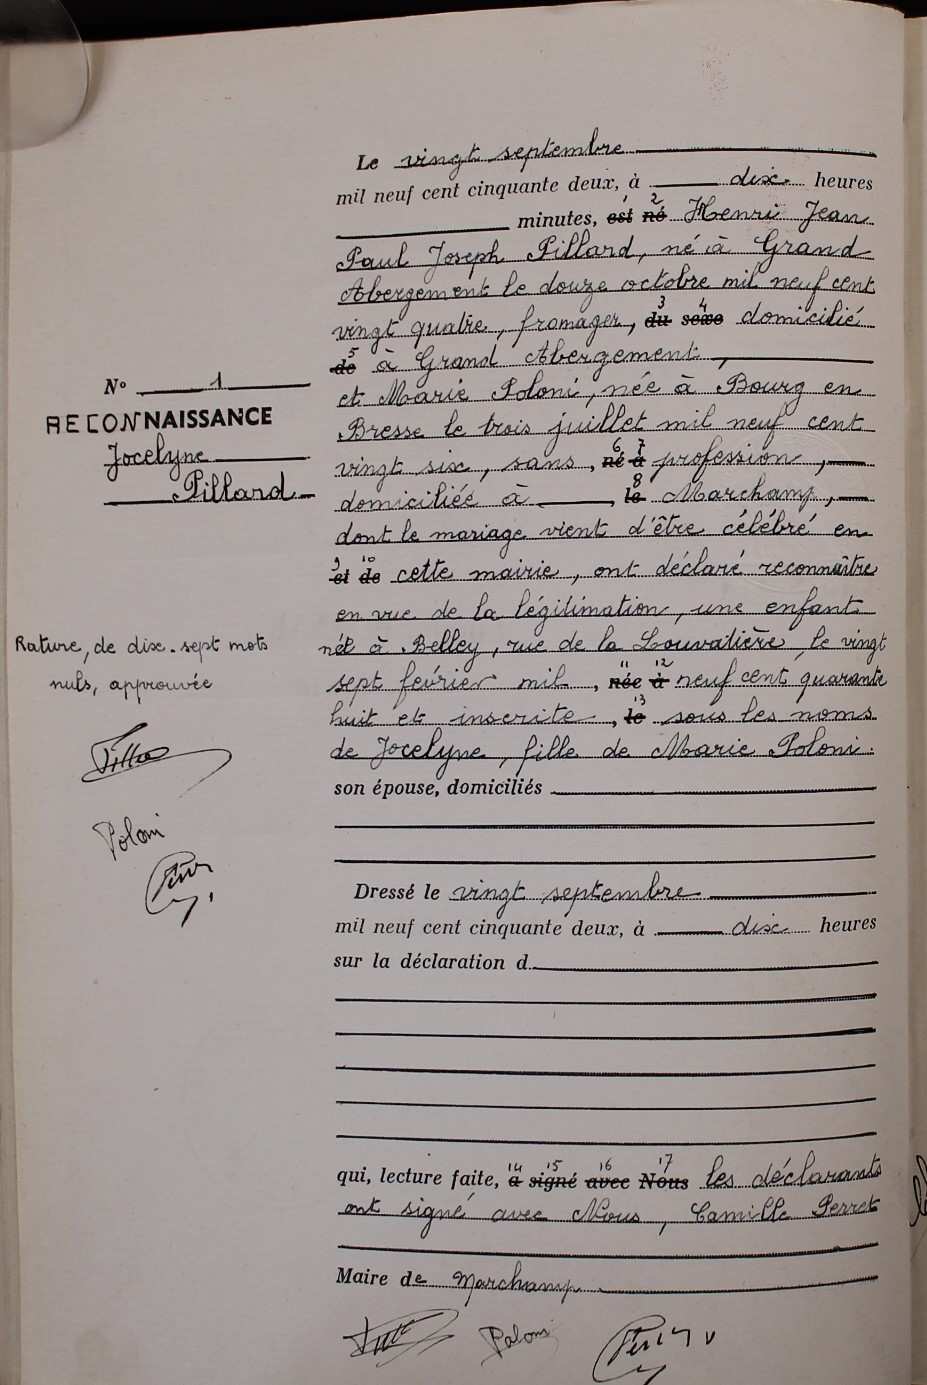 Le vingt septembre
mil neuf cent cinquante deux, à dix heures
minutes, est 1 né 2 Henri Jean
Paul Joseph Pillard, né à Grand
Abergement le douze octobre mil neuf cent
vingt quatre, fromager, du 3 sexe 4 domicilié
de 5 à Grand Abergement,
et Marie Poloni, née à Bourg en
Bresse le trois juillet mil neuf cent
vingt six, sans, né 6 à 7 profession,
domiciliée à, le 8 Marchamp,
dont le mariage vient d'être célébré en
et 9 de 10 cette mairie, ont déclaré reconnaître
en vue de la légitimation, une enfant
née à Belley, rue de la Louvatière, le vingt
sept février mil, née 11 à 12 neuf cent quarante
huit et inscrite, le 13 sous les noms
de Jocelyne, fille de Marie Poloni.
son épouse, domiciliés
Dressé le vingt septembre
mil neuf cent cinquante deux, à dix heures
sur la déclaration d
qui, lecture faite, a 14 signé 15 avec 16 Nous 17 les déclarants
ont signé avec Nous, Camille Perret
Maire de Marchamp
Poloni
N° 1
RECONNAISSANCE
Jocelyne
Pillard
Rature, de dix-sept mots
nuls, approuvée
Poloni